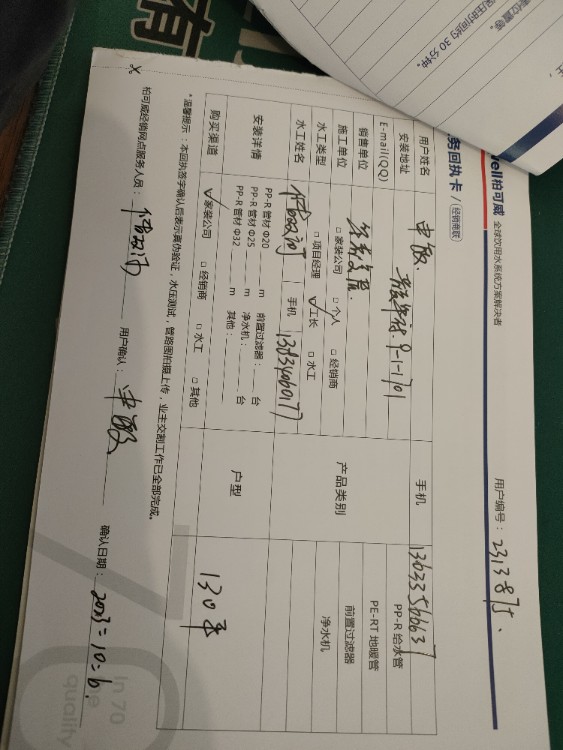 ell柏可威 全球饮用水系统方案解决者
务回执卡 / 经销商联
用户编号：2313875.
用户姓名 申敏. 手机 13633566637
安装地址 9-1-1701
E-mail(QQ)
销售单位
施工单位 □家装公司 □个人 □经销商
水工类型 □项目经理 □工长 □水工
水工姓名 手机 13834060177
产品类别 PP-R 给水管
PE-RT 地暖管
前置过滤器
净水机
安装详情 PP-R 管材 Φ20 m 前置过滤器： 台
PP-R 管材 Φ25 m 净水机： 台
PP-R 管材 Φ32 m 其他：
户型 130平
购买渠道 □家装公司 □经销商 □水工 □其他
*温馨提示：本回执签字确认后表示真伪验证，水压测试，管路图拍摄上传，业主交割工作已全部完成。
柏可威经销网点服务人员： 用户确认：申敏 确认日期：2023=10=6.
In 70
quality
保压时间约 30 分钟。
位置等。
有